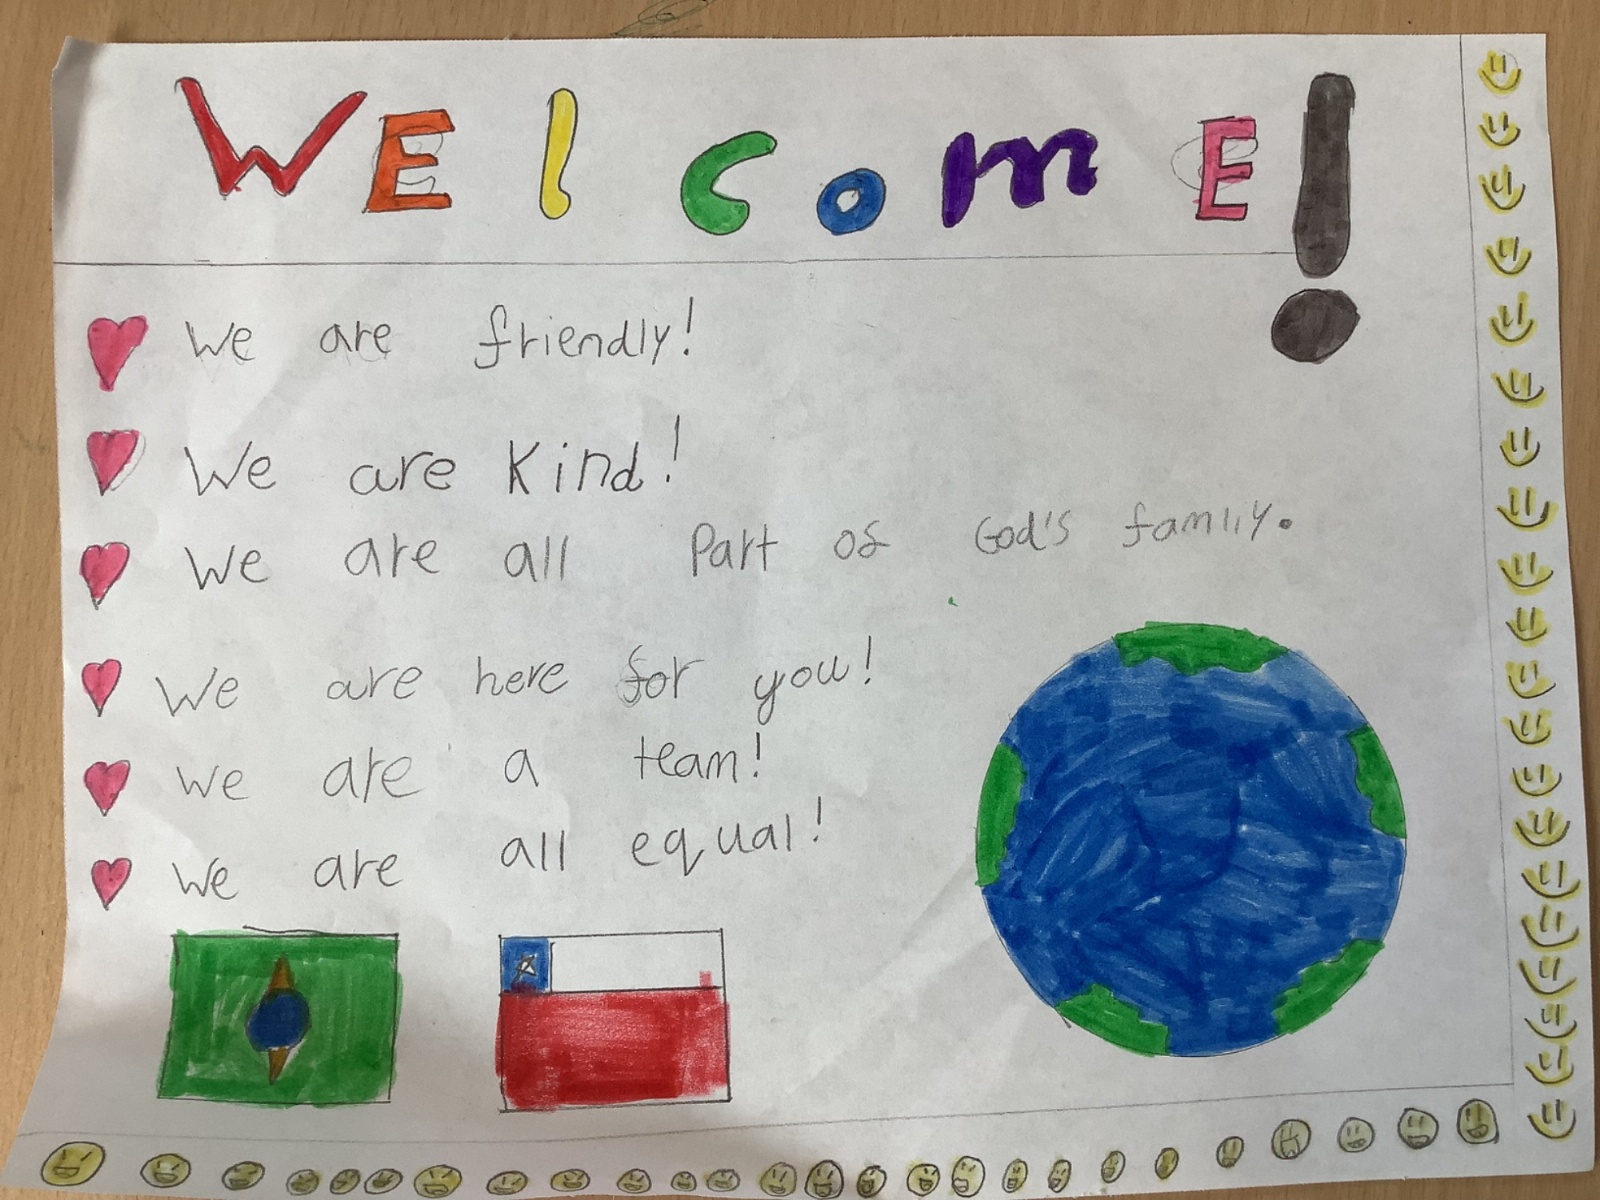 WElcomE!
We are friendly!
We are kind!
We are all Part of God's family.
We are here for you!
We are a team!
We are all equal!